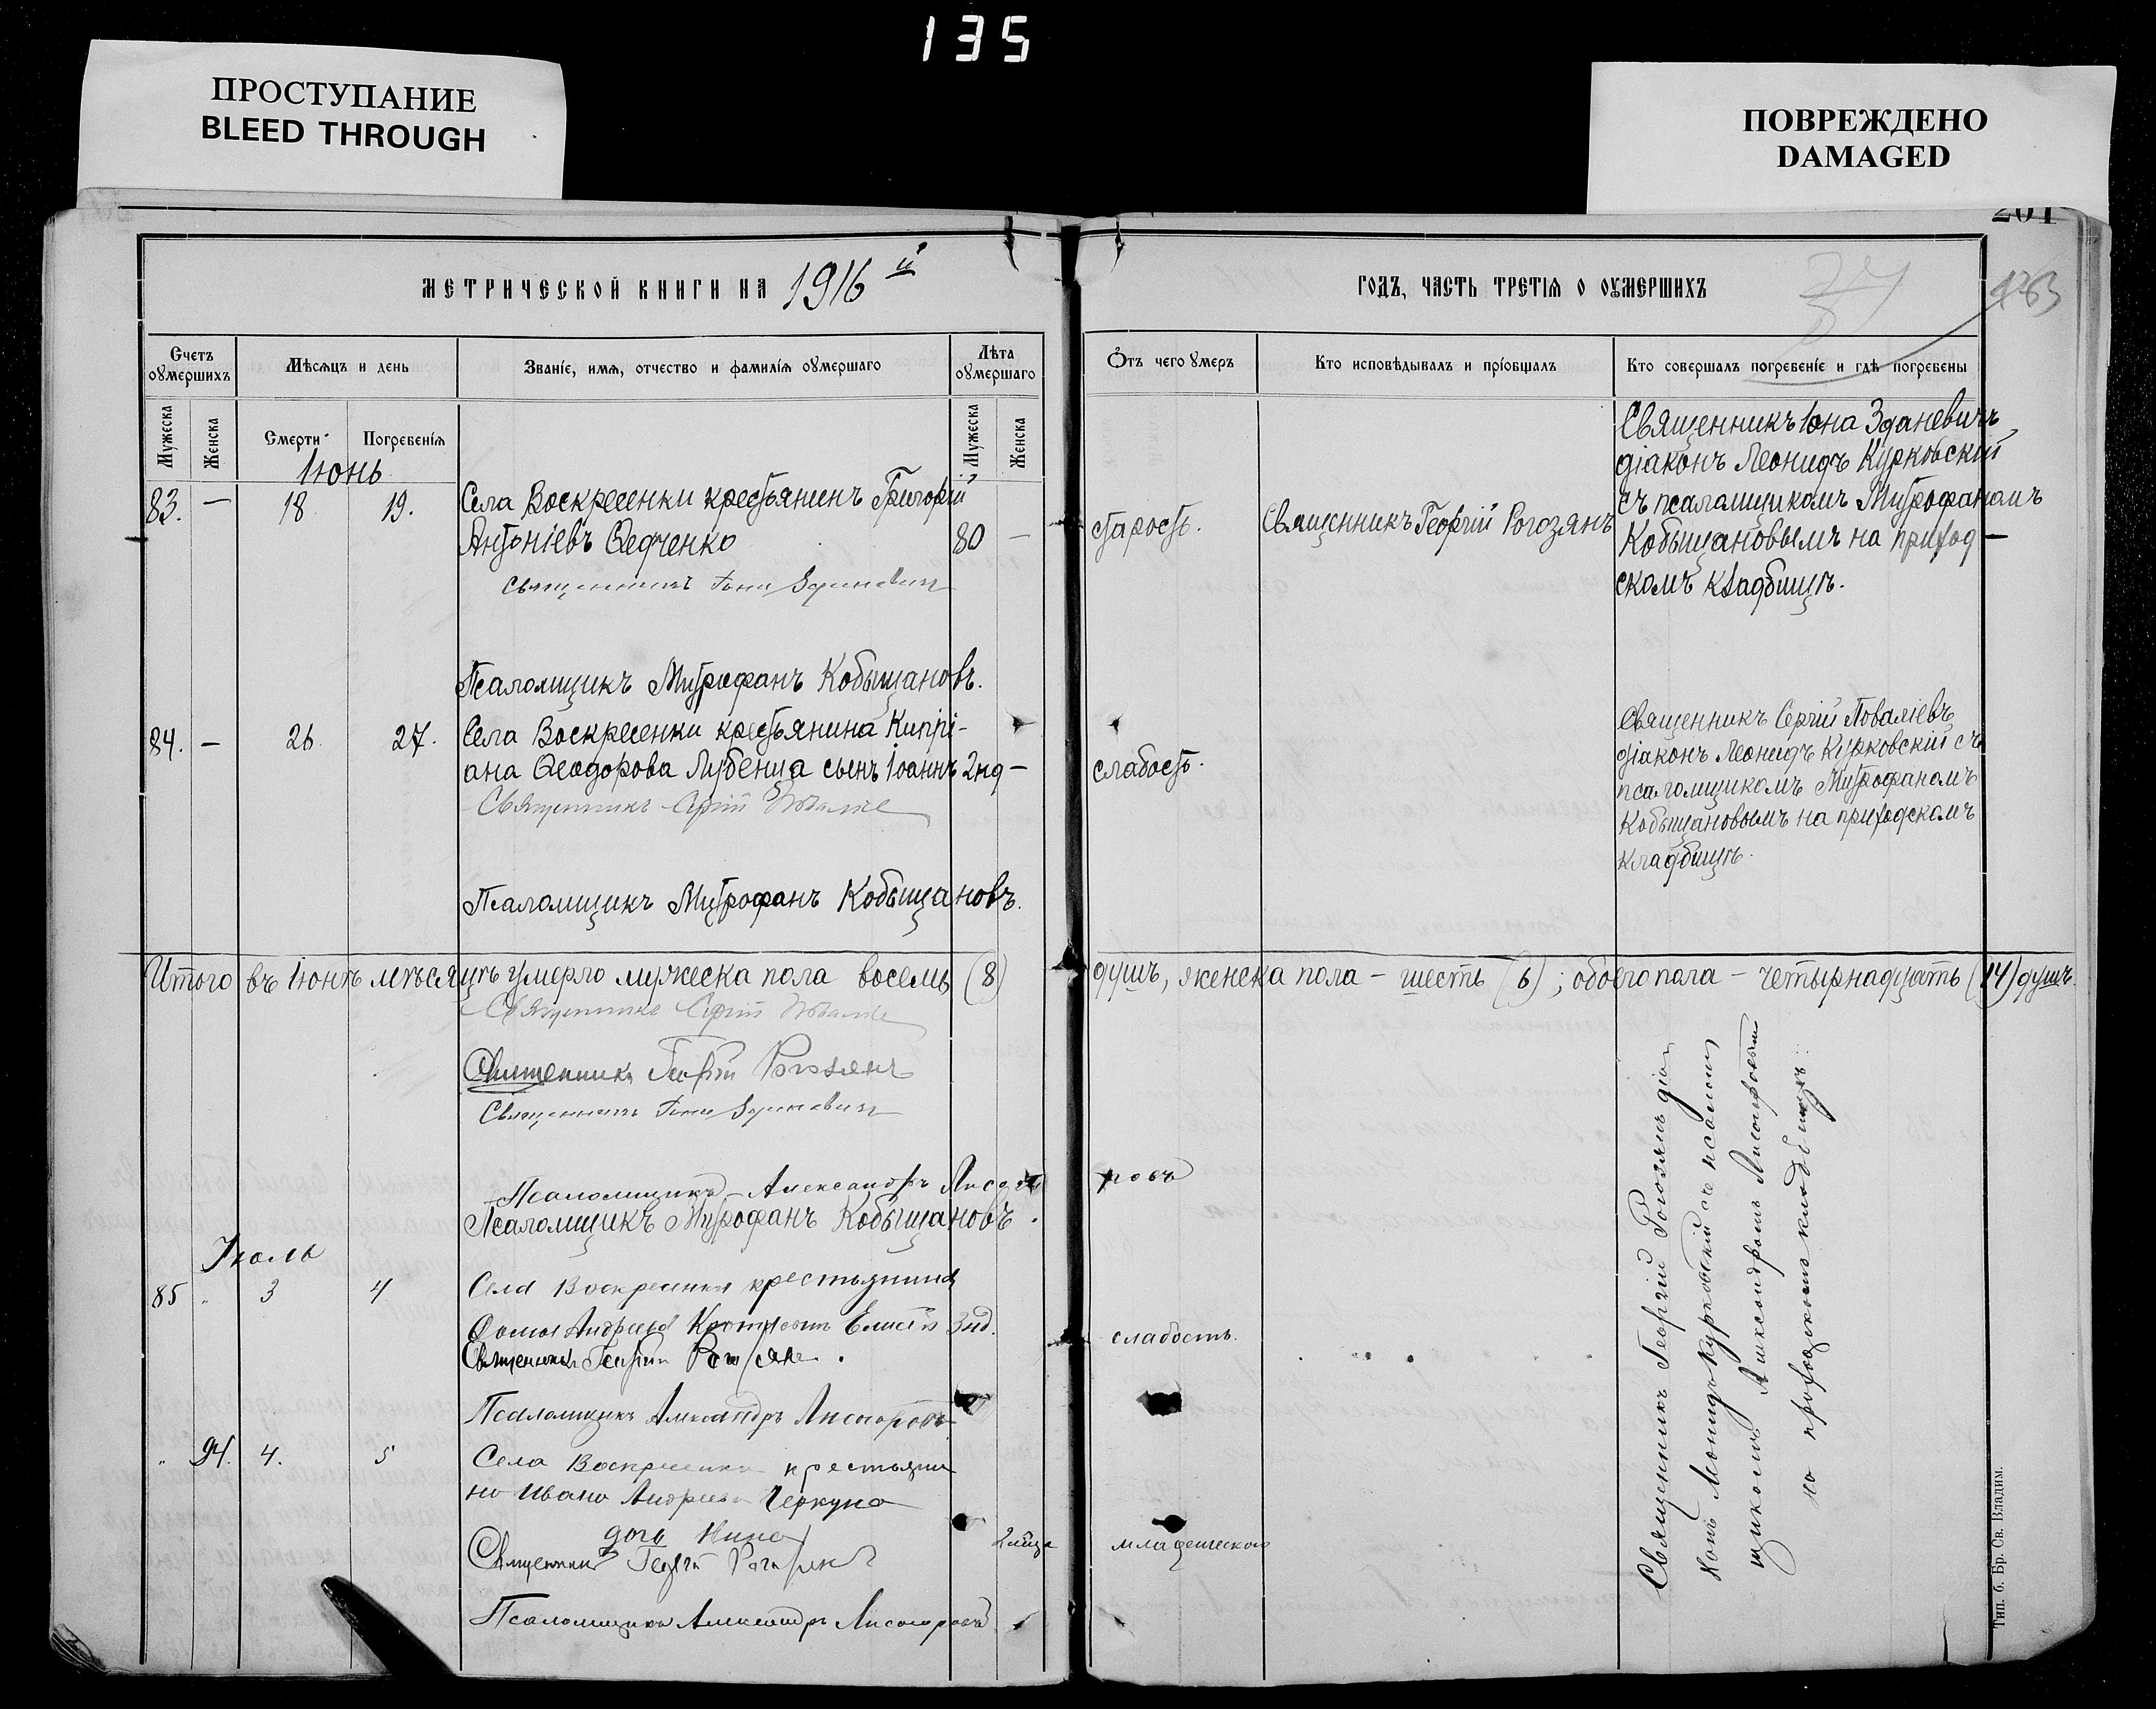 135
ПРОСТУПАНИЕ
BLEED THROUGH
ПОВРЕЖДЕНО
DAMAGED
201
МЕТРИЧЕСКОЙ КНИГИ НА 1916 й
Счетъ оумершихъ
Мѣсяцъ и день
Званіе, имя, отчество и фамилія оумершаго
Лѣта оумершаго
Мужеска
Женска
Смерти
Погребенія
Мужеска
Женска
Іюнь
83. — 18 19. Села Воскресенки крестьянинъ Григорій
Антоніевъ Ѳедченко 80 —
Священникъ Іона Зданевичъ
Псаломщикъ Митрофанъ Кобыщановъ.
84. — 26. 27. Села Воскресенки крестьянина Кипрі-
ана Ѳеодорова Лубенца сынъ Іоаннъ 2нд —
Священникъ Сергій
Псаломщикъ Митрофанъ Кобыщановъ.
Итого въ Іюнѣ мѣсяцѣ умерло мужеска пола восемь (8)
Священникъ Сергій
Священникъ Георгій Рогозянъ
Священникъ Іона Зданевичъ
Псаломщикъ Александръ Лисого
Псаломщикъ Митрофанъ Кобыщановъ.
Іюль
85 " 3 4 Села Воскресенки крестьянина
Ѳомы Андреева Елисей 3нд.
Священникъ Георгій Рогозянъ.
Псаломщикъ Александръ Лисогоровъ
" 94. 4. 5 Села Воскресенки крестьяни
на Ивана Андреева Черкуна
дочь Нина
Священникъ Георгій Рогозянъ
Псаломщикъ Александръ Лисогоровъ
ГОДЪ, ЧАСТЬ ТРЕТІЯ О ОУМЕРШИХЪ
Отъ чего умеръ
Кто исповѣдывалъ и пріобщалъ
Кто совершалъ погребеніе и гдѣ погребены
старость.
Священникъ Георгій Рогозянъ
Священникъ Іона Зданевичъ,
діаконъ Леонидъ Курковскій
съ псаломщикомъ Митрофаномъ
Кобыщановымъ на приход-
скомъ кладбищѣ.
слабость.
Священникъ Сергій Поваліевъ
діаконъ Леонидъ Курковскій съ
псаломщикомъ Митрофаномъ
Кобыщановымъ на приходскомъ
кладбищѣ.
душъ, женска пола — шесть (6); обоего пола — четырнадцать (14) душъ.
ровъ
слабость.
младенческая
Священникъ Георгій Рогозянъ діа
конъ Леонидъ Курковскій съ псалом
щикомъ Александромъ Лисогоровымъ
на приходскомъ кладбищѣ.
Тип. б. Бр. Св. Владим.